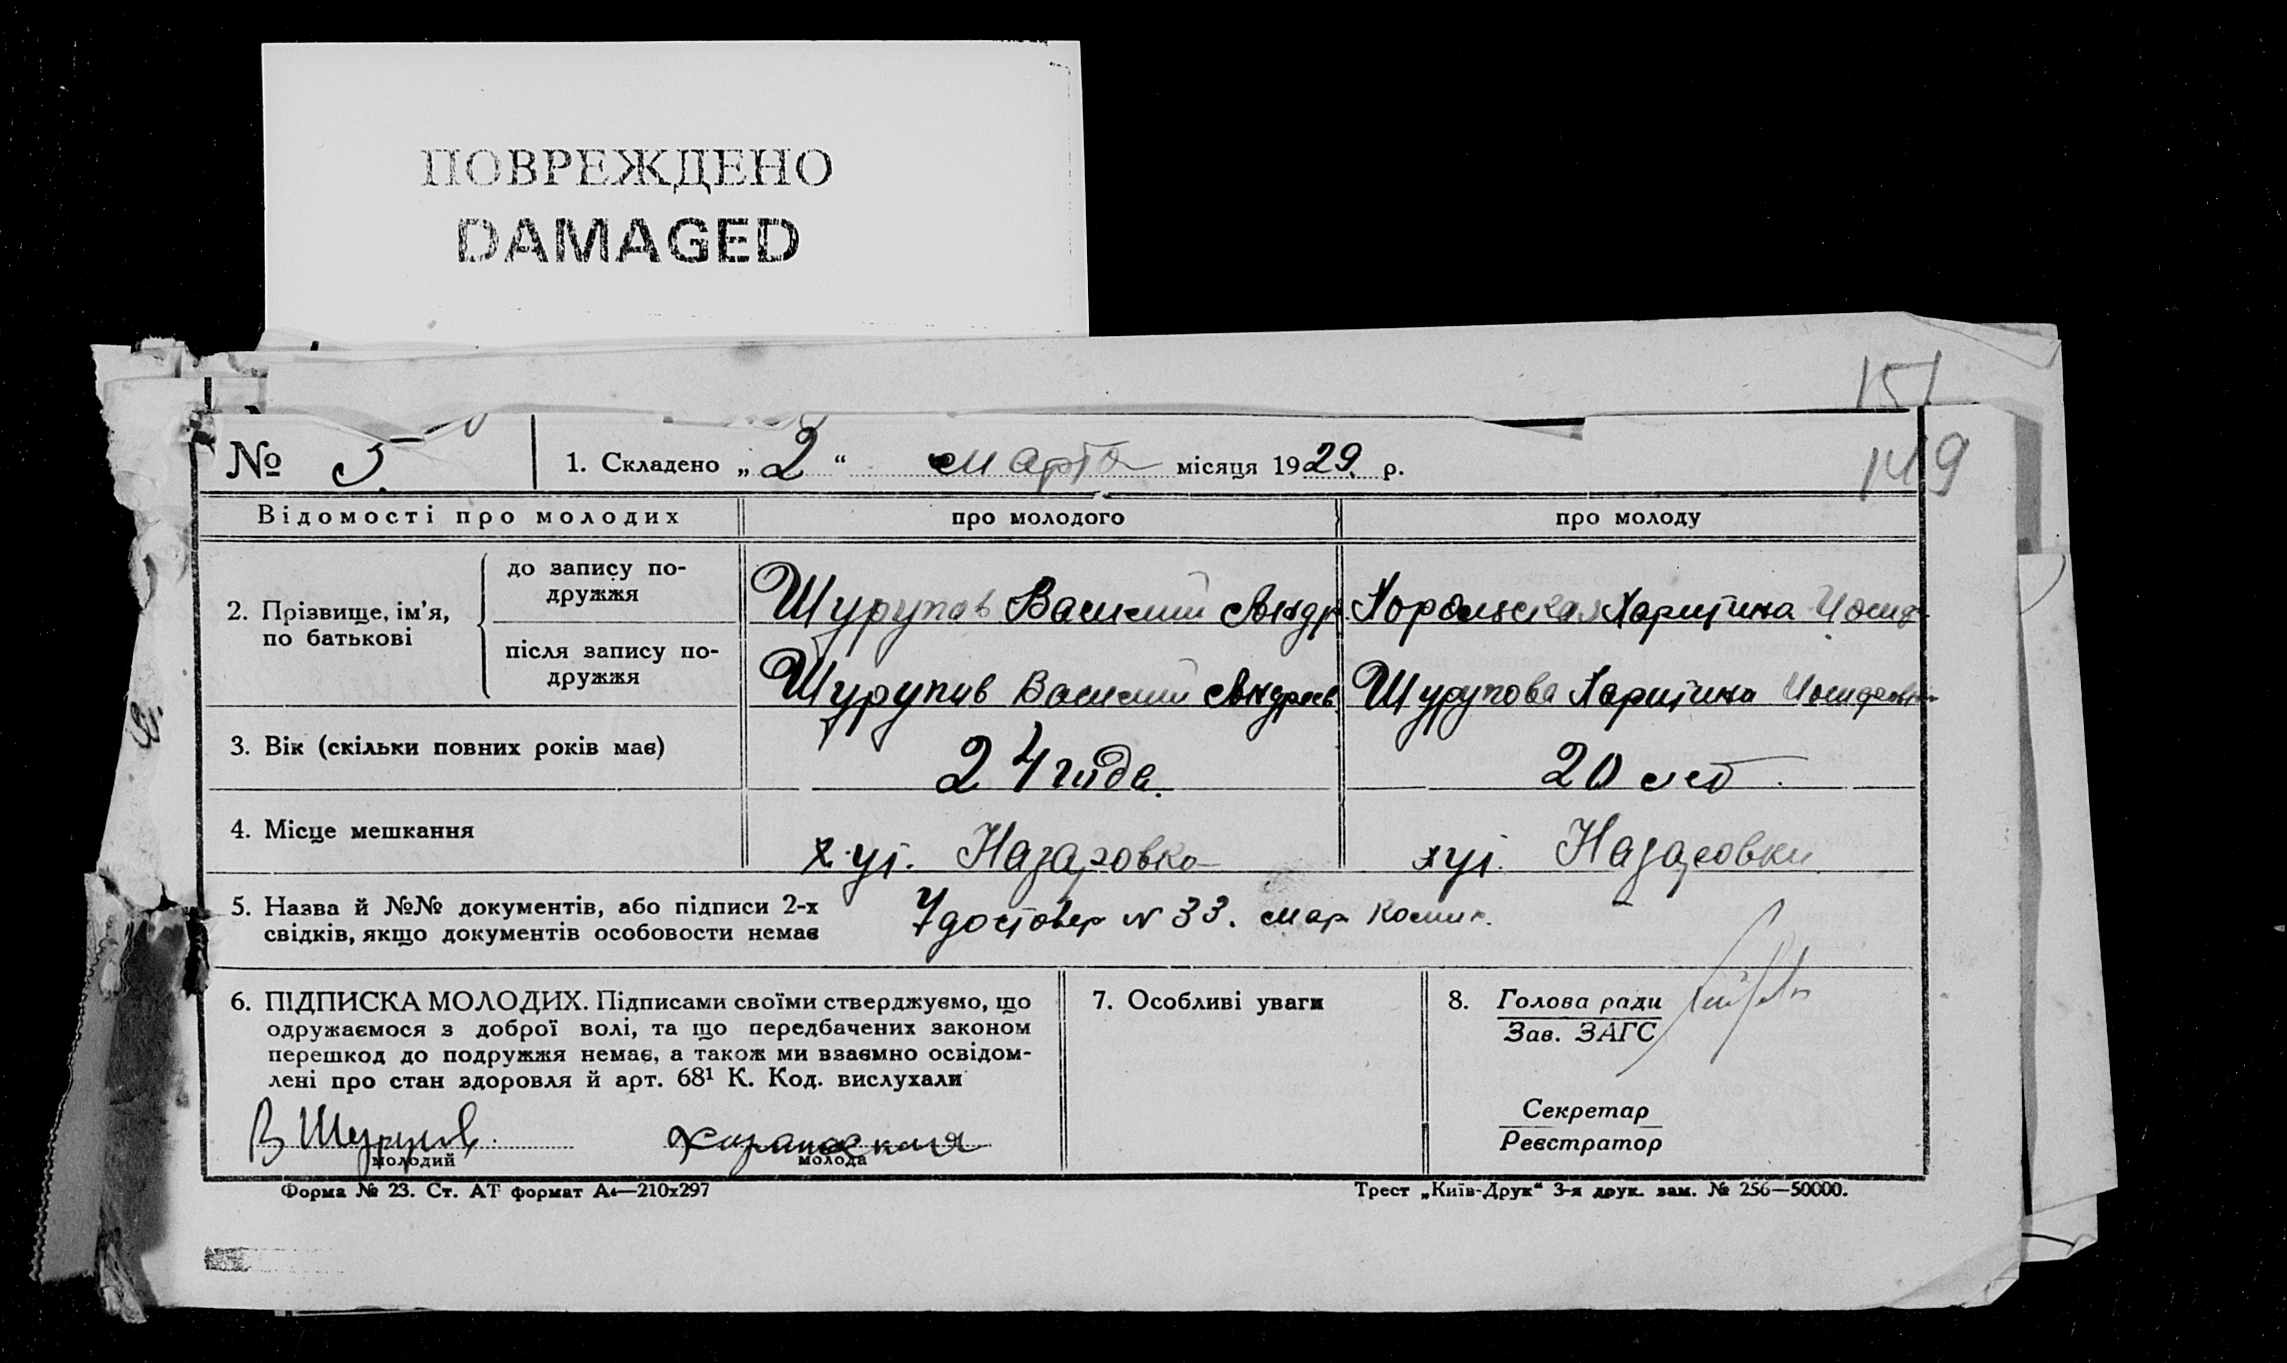 ПОВРЕЖДЕНО
DAMAGED
151
149
№ 5. 1. Складено „ 2 “ марта місяця 1929 р.
Відомості про молодих про молодого про молоду
2. Прізвище, ім’я, по батькові
до запису подружжя Шурупов Василий Андр. Харитина Иосид
після запису подружжя Шурупов Василий Андреев. Шурупова Харитина
3. Вік (скільки повних років має) 24 года. 20 лет.
4. Місце мешкання хут. Назаровка хут. Назаровки
5. Назва й №№ документів, або підписи 2-х Удостовер N 33.
свідків, якщо документів особовости немає
6. ПІДПИСКА МОЛОДИХ. Підписами своїми стверджуємо, що
одружаємося з доброї волі, та що передбачених законом
перешкод до подружжя немає, а також ми взаємно освідом-
лені про стан здоровля й арт. 68¹ К. Код. вислухали
В Шурупов.
молодий молода
7. Особливі уваги
8. Голова ради
Зав. ЗАГС
Секретар
Реєстратор
Форма № 23. Ст. АТ формат А4—210х297 Трест „Київ-Друк“ 3-я друк. зам. № 256—50000.